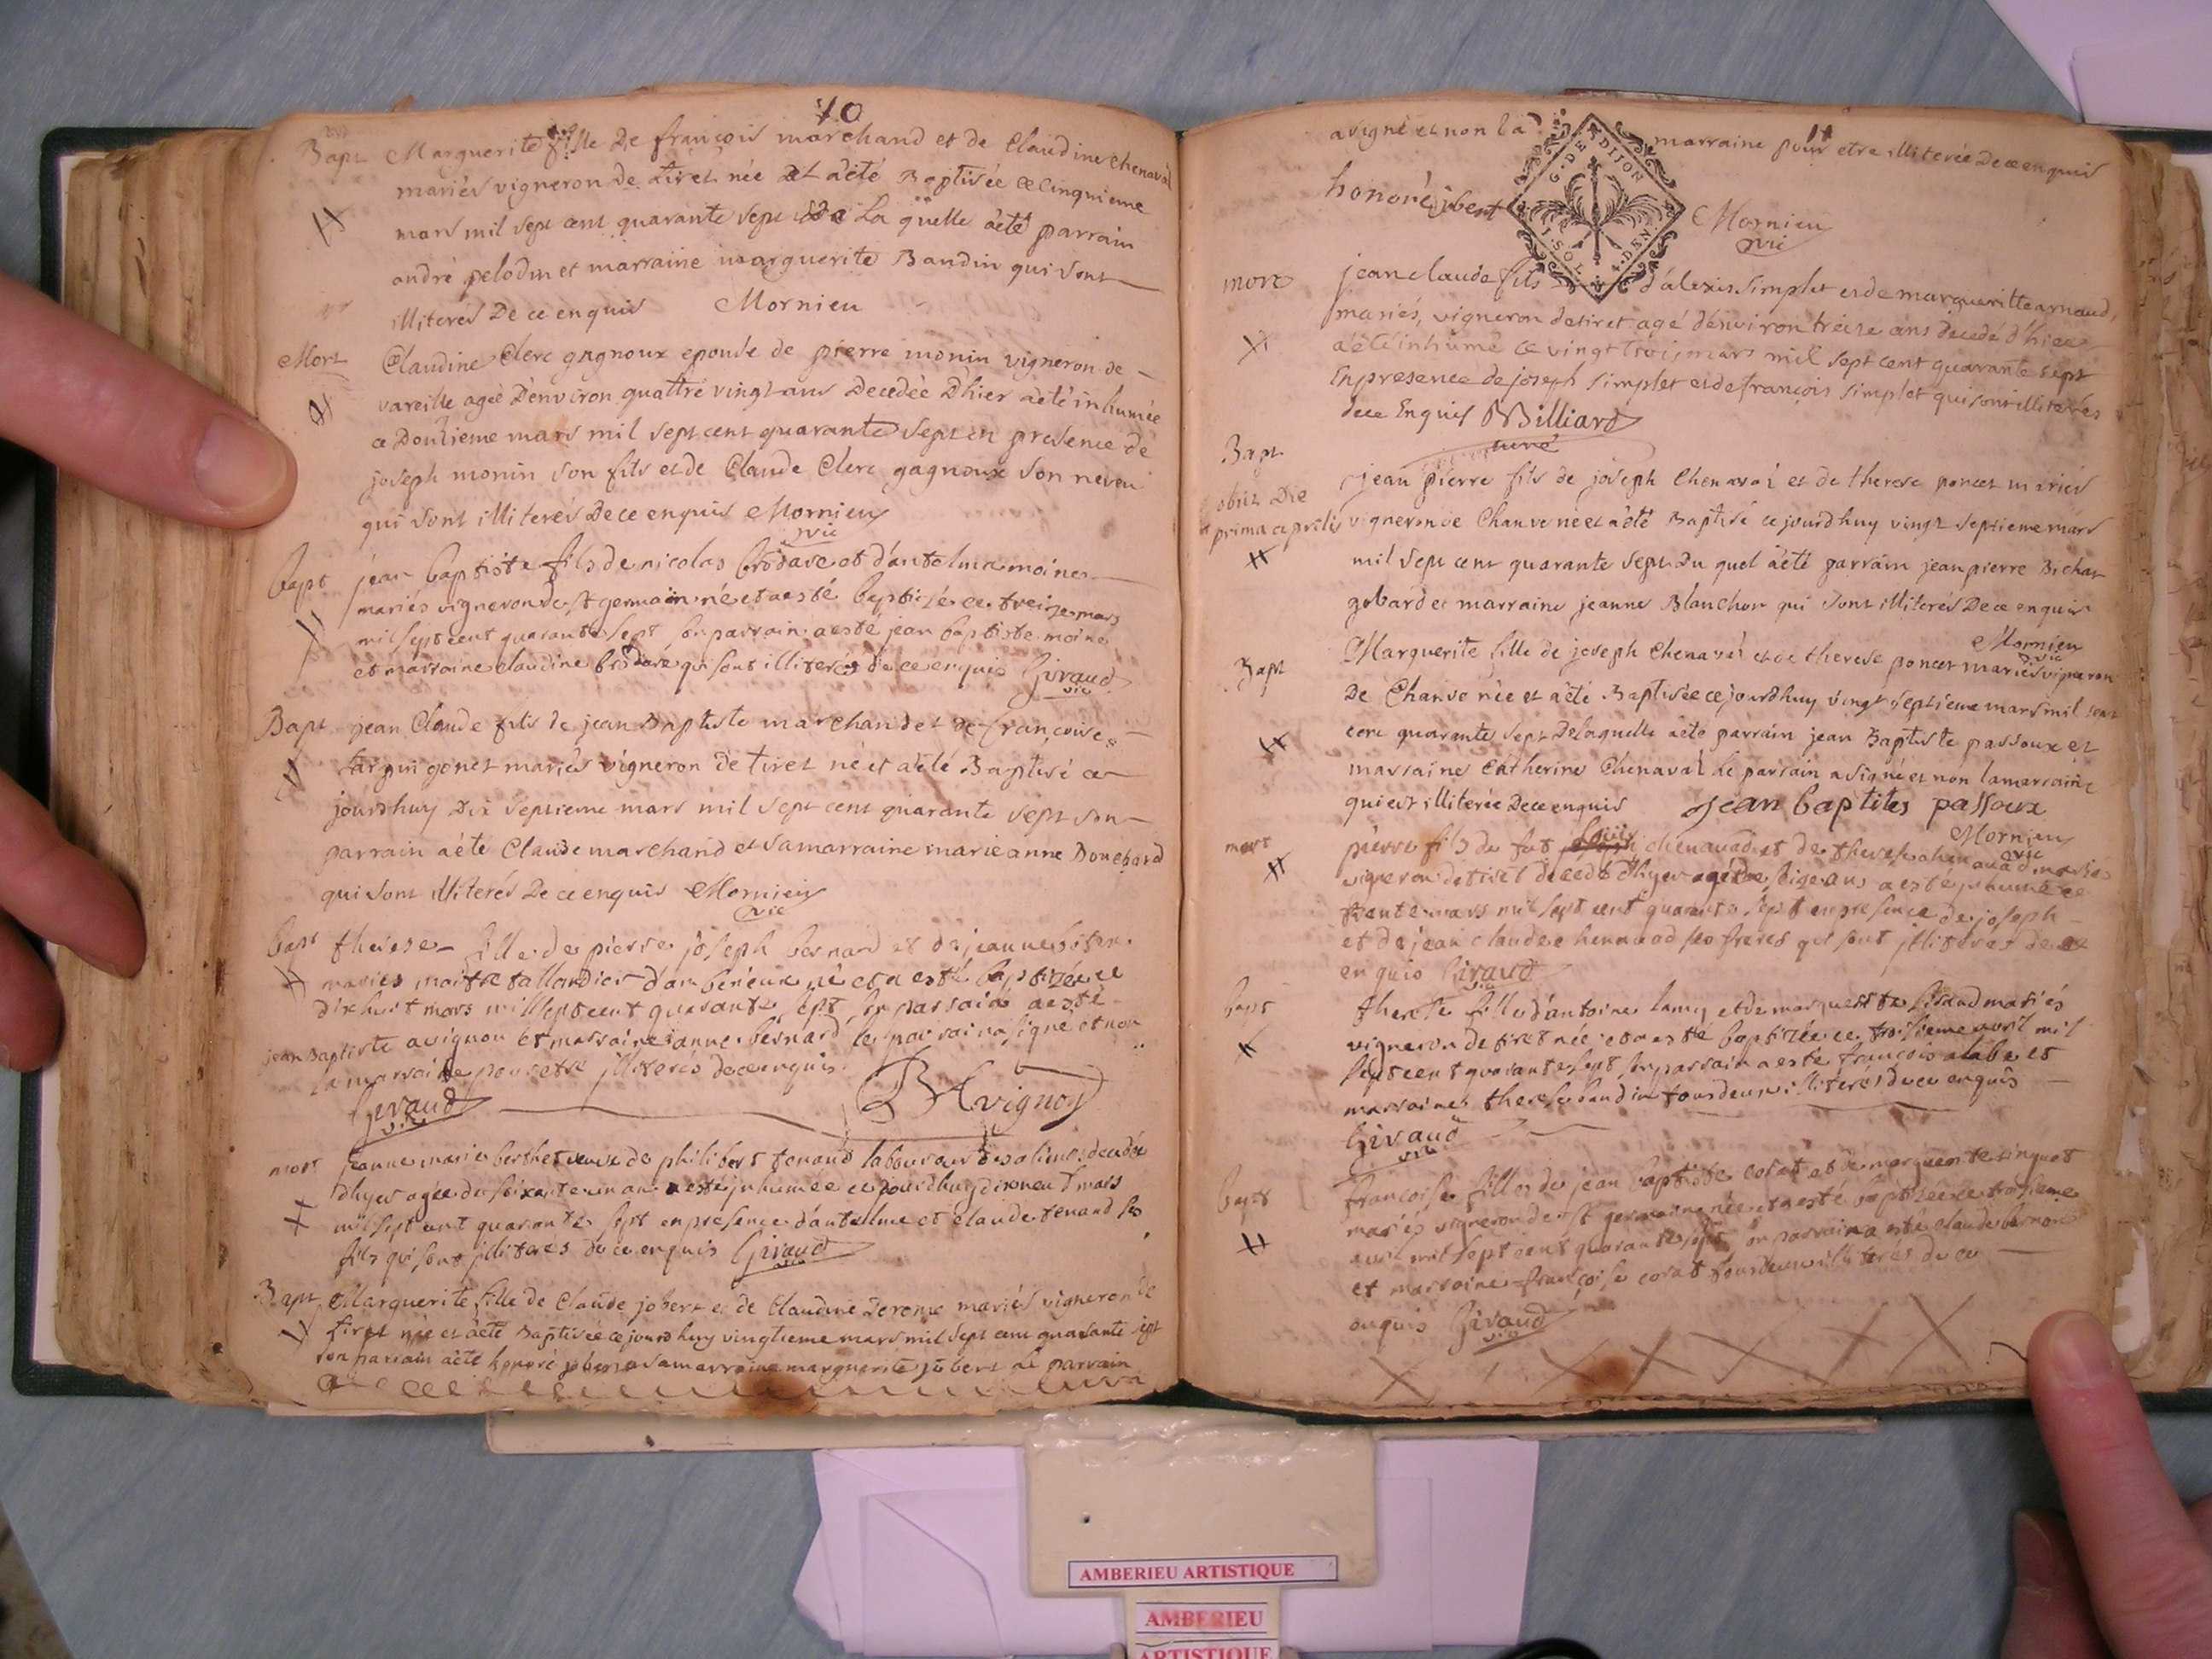 10
Bapt Marguerite fille De françois marchand et de Claudine Chenaval
mariés vigneron de tiret née et a èté Baptisée ce cinquieme
mars mil sept cent quarante sept de La quelle àeté parrain
andré pelodin et marraine marguerite Baudin qui sont
illiterés De ce enquis Mornieu
Mort Claudine Clerc gagnoux epouse de pierre monin vigneron de
vareille ageè D'environ quattre vingt ans Decedèe D'hier àeté inhumée
ce Douzieme mars mil sept cent quarante sept en presence de
joseph monin son fils et de Claude Clerc gagnoux son neveu
qui sont illiterés De ce enquis Mornieu
vic
bapt jean baptiste fils de nicolas brodare et d'antelma moine
mariés vigneron de st germain né et a esté baptisé ce treize mars
mil sept cent quarante sept son parrain a esté jean baptiste moine
et marraine claudine brodaré qui sont illiterés de ce enquis Giraud
vic
Bapt jean Claude fils de jean Baptiste marchand et de françoise
mariés vigneron de tiret né et a èté Baptisé ce
jourdhuy Dix septieme mars mil sept cent quarante sept son
parrain àeté Claude marchand et sa marraine marie anne Bouchard
qui sont illiterés De ce enquis Mornieu
vic
bapt therese fille de pierre joseph bernard et de jeanne
mariés maitre tallandier d'amberieux né et a esté baptizée ce
dix huit mars mil sept cent quarante sept son parrain a esté
jean Baptiste avignon et marraine anne bernard le parrain a signé et non
la marraine pour etre illiterés de ce enquis
Giraud B Avignon
vic
mort jeanne marie berthet veuve de philibert tenand laboureur des alimes decedée
dhyer agée de soixante un an a esté inhumée ce jourdhuy dixneuf mars
mil sept cent quarante sept en presence d'antelme et claude tenand ses
fils qui sont illiterés de ce enquis Giraud
vic
Bapt Marguerite fille de Claude jobert et de Claudine Derome mariés vigneron de
tiret née et àeté Baptisée ce jourd huy vingtieme mars mil sept cent quarante sept
son parrain àeté honoré jobert et sa marraine marguerite jobert le parrain
11
a signé et non la marraine pour etre illiterée De ce enquis
G. DE DIJON
1. SOL. 4. DEN.
honoré jbert Mornieu
vic
mort jean claude fils d'alexis simplet et de margueritte arnaud,
mariés, vigneron de tiret agé d'environ treize ans decedé d'hier
a èté inhumé ce vingt trois mars mil sept cent quarante sept
En presence de joseph simplet et de françois simplet qui sont illiterés
de ce Enquis Billiard
curé
Bapt jean pierre fils de joseph Chenaval et de therese poncet mariés
obiit Die
prima aprilis vigneron de Chauve né et àeté Baptisé ce jourdhuy vingt septieme mars
mil sept cent quarante sept Du quel àeté parrain jean pierre Bichat
gobard et marraine jeanne Blanchon qui sont illiterés De ce enquis
Mornieu
vic
Bapt Marguerite fille de joseph Chenaval et de therese poncet mariés vigneron
De Chauve née et àeté Baptisée ce jourdhuy vingt septieme mars mil sept
cent quarante sept De laquelle àeté parrain jean Baptiste passoux et
marraine Catherine Chenaval le parrain a signé et non la marraine
qui est illiterée De ce enquis jean baptites passoux
Mornieu
vic
mort pierre fils de fut chenavad et de therese chenavad mariés
vigneron de tiret decedé d'hyer agé de seize ans a esté inhumé ce
trente mars mil sept cent quarante sept en presence de joseph
et de jean claude chenavad ses freres qui sont illiterés de ce
enquis Giraud
vic
bapt therese fille d'antoine lamy et de marguerite giraud mariés
vigneron de tiret née et a esté baptizée ce troisieme avril mil
sept cent quarante sept son parrain a esté françois alabe et
marraine therese baudin tous deux illiterés de ce enquis
Giraud
vic
bapt francoise fille de jean baptiste corat et de marguerite
mariés vigneron de st germain née et a esté baptizée ce troisieme
avril mil sept cent quarante sept son parrain a esté claude bernon
et marraine françoise corat tous deux illiterés de ce
enquis Giraud
vic
AMBERIEU ARTISTIQUE
AMBERIEU
ARTISTIQUE